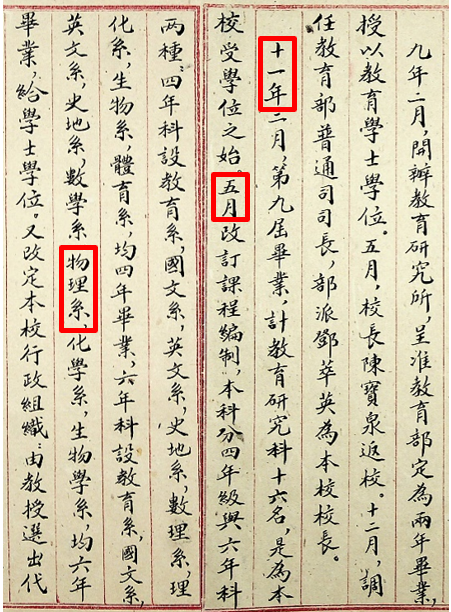 九年二月，開辦教育研究所，呈准教育部定為兩年畢業，
授以教育學士學位。五月，校長陳寶泉返校。十二月，調
任教育部普通司司長，部派鄧萃英為本校校長。
十一年二月，第九屆畢業，計教育研究科十六名，是為本
校受學位之始。五月改訂課程編制，本科分四年級與六年科
兩種：四年科設教育系，國文系，英文系，史地系，數理系，理
化系，生物系，體育系，均四年畢業，六年科設教育系，國文系，
英文系，史地系，數學系，物理系，化學系，生物學系，均六年
畢業，給學士學位。又改定本校行政組織：由教授選出代